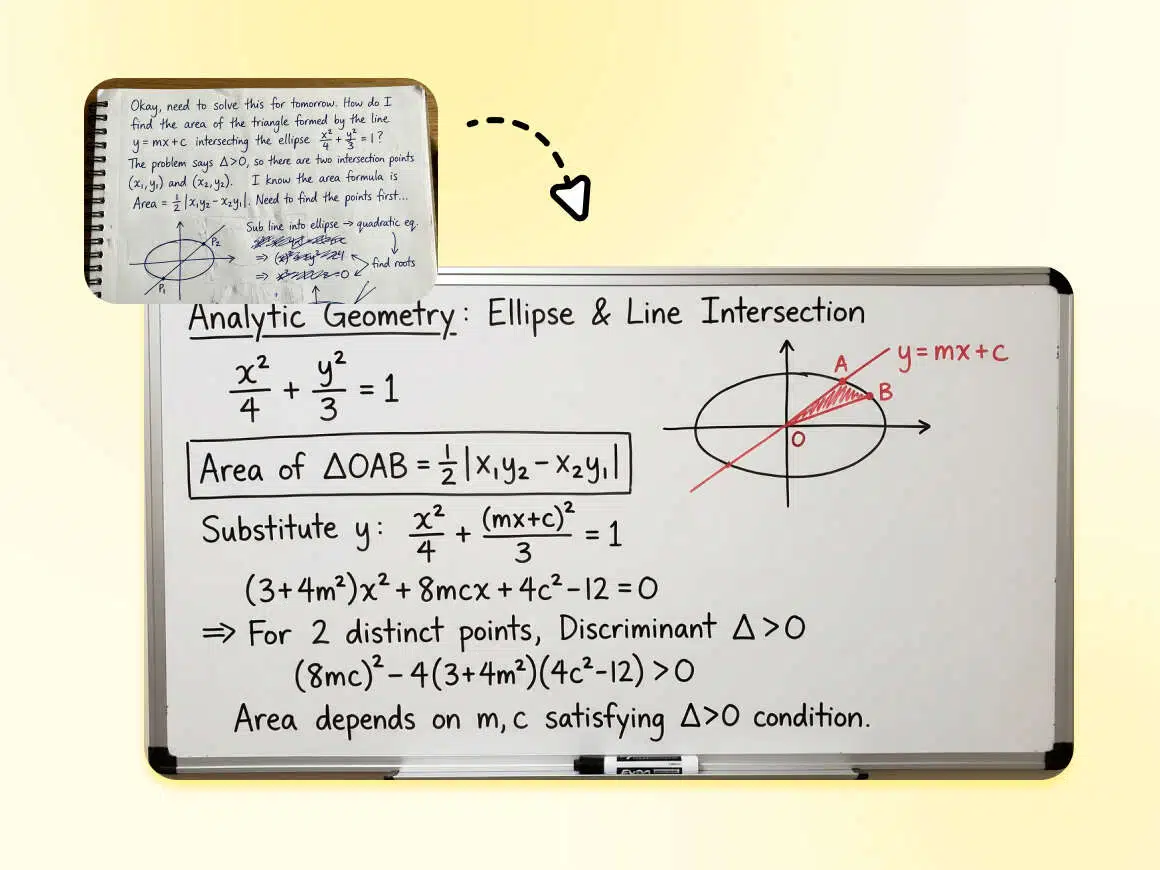 Okay, need to solve this for tomorrow. How do I
find the area of the triangle formed by the line
y = mx + c intersecting the ellipse x²/4 + y²/3 = 1?
The problem says Δ>0, so there are two intersection points
(x₁, y₁) and (x₂, y₂). I know the area formula is
Area = ½ |x₁y₂ − x₂y₁|. Need to find the points first...
Sub line into ellipse → quadratic eq.
⇒
⇒ = 0
find roots
P₂
P₁
Analytic Geometry: Ellipse & Line Intersection
x²/4 + y²/3 = 1
Area of ΔOAB = ½ |x₁y₂ − x₂y₁|
Substitute y: x²/4 + (mx+c)²/3 = 1
(3+4m²)x² + 8mcx + 4c² − 12 = 0
⇒ For 2 distinct points, Discriminant Δ > 0
(8mc)² − 4(3+4m²)(4c²−12) > 0
Area depends on m, c satisfying Δ>0 condition.
y = mx + c
A
B
O